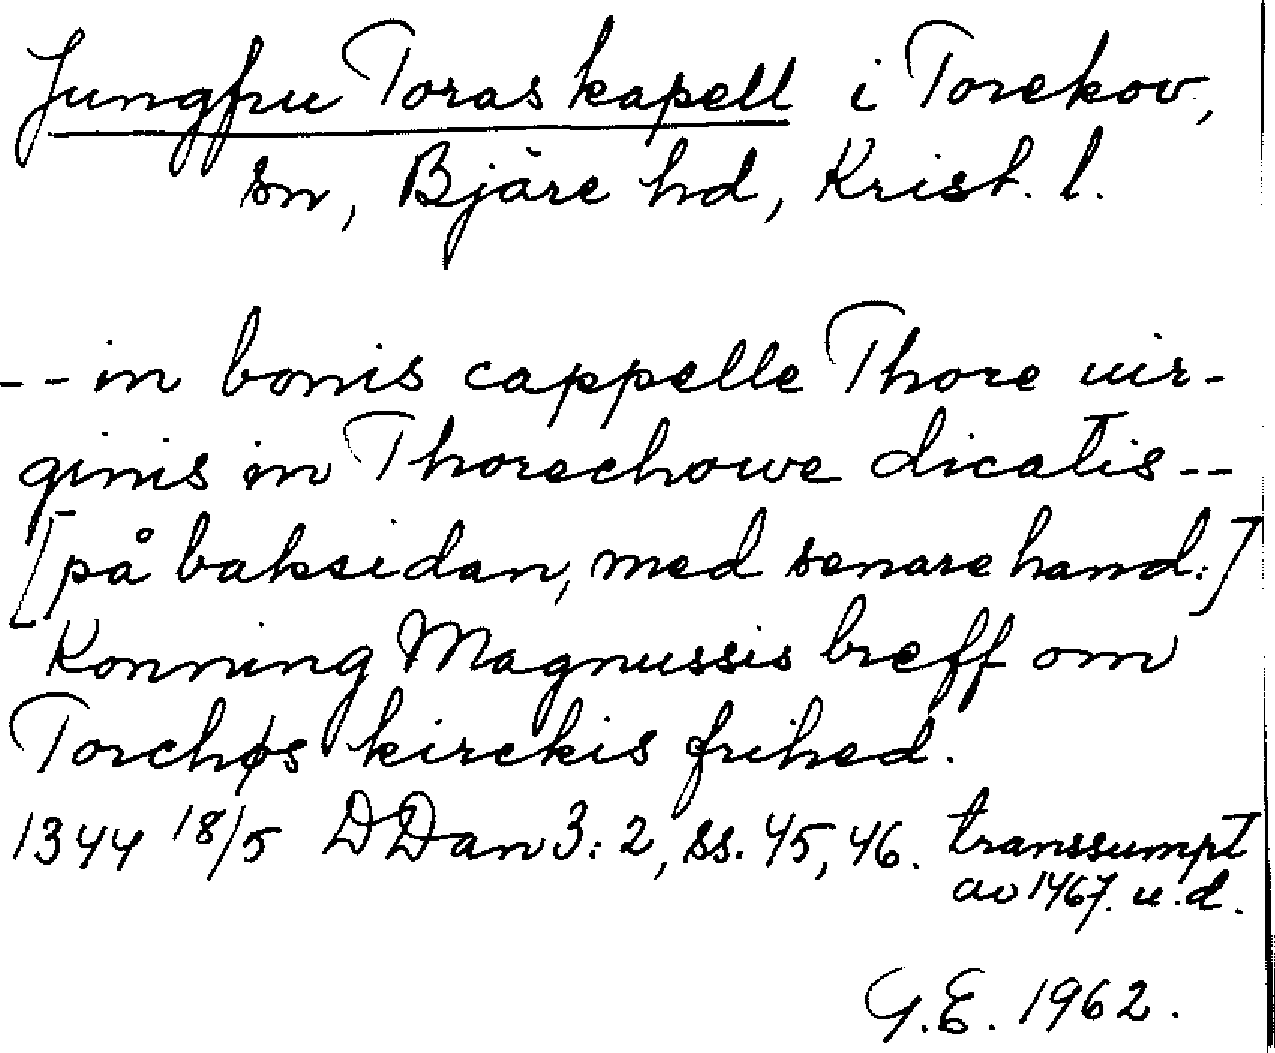 Jungfru Toras kapell i Torekov,
sn, Bjäre hd, Krist. l.
-- in bonis cappelle Thore uir-
ginis in Thorechowe dicatis --
[på baksidan, med senare hand:]
Konning Magnussis breff om
Torchøs kirckis frihed.
1344 18/5 DDan 3:2, ss. 45, 46. transsumpt
av 1467. u.d.
G.E. 1962.